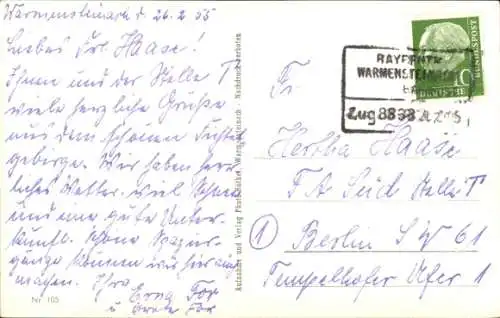 Warmensteinach d. 26.2.55
Liebes Frl. Haase!
Ihnen und der Stelle T
viele herzliche Grüße
aus dem schönen Fichtel
gebirge. Wir haben herr
liches Wetter, viel Schnee
und eine gute Unter
kunft. Schöne Spazier-
gänge können wir hier auch
machen. Ihre
Erna
u.
Nr. 105
Aufnahme und Verlag Warmensteinach - Nachdruck verboten
BAYREUTH
WARMENSTEINACH
Zug 8838
DEUTSCHE
BUNDESPOST
10
Frl.
Hertha Haase
FA Süd Stelle T
1 Berlin SW 61
Tempelhofer Ufer 1